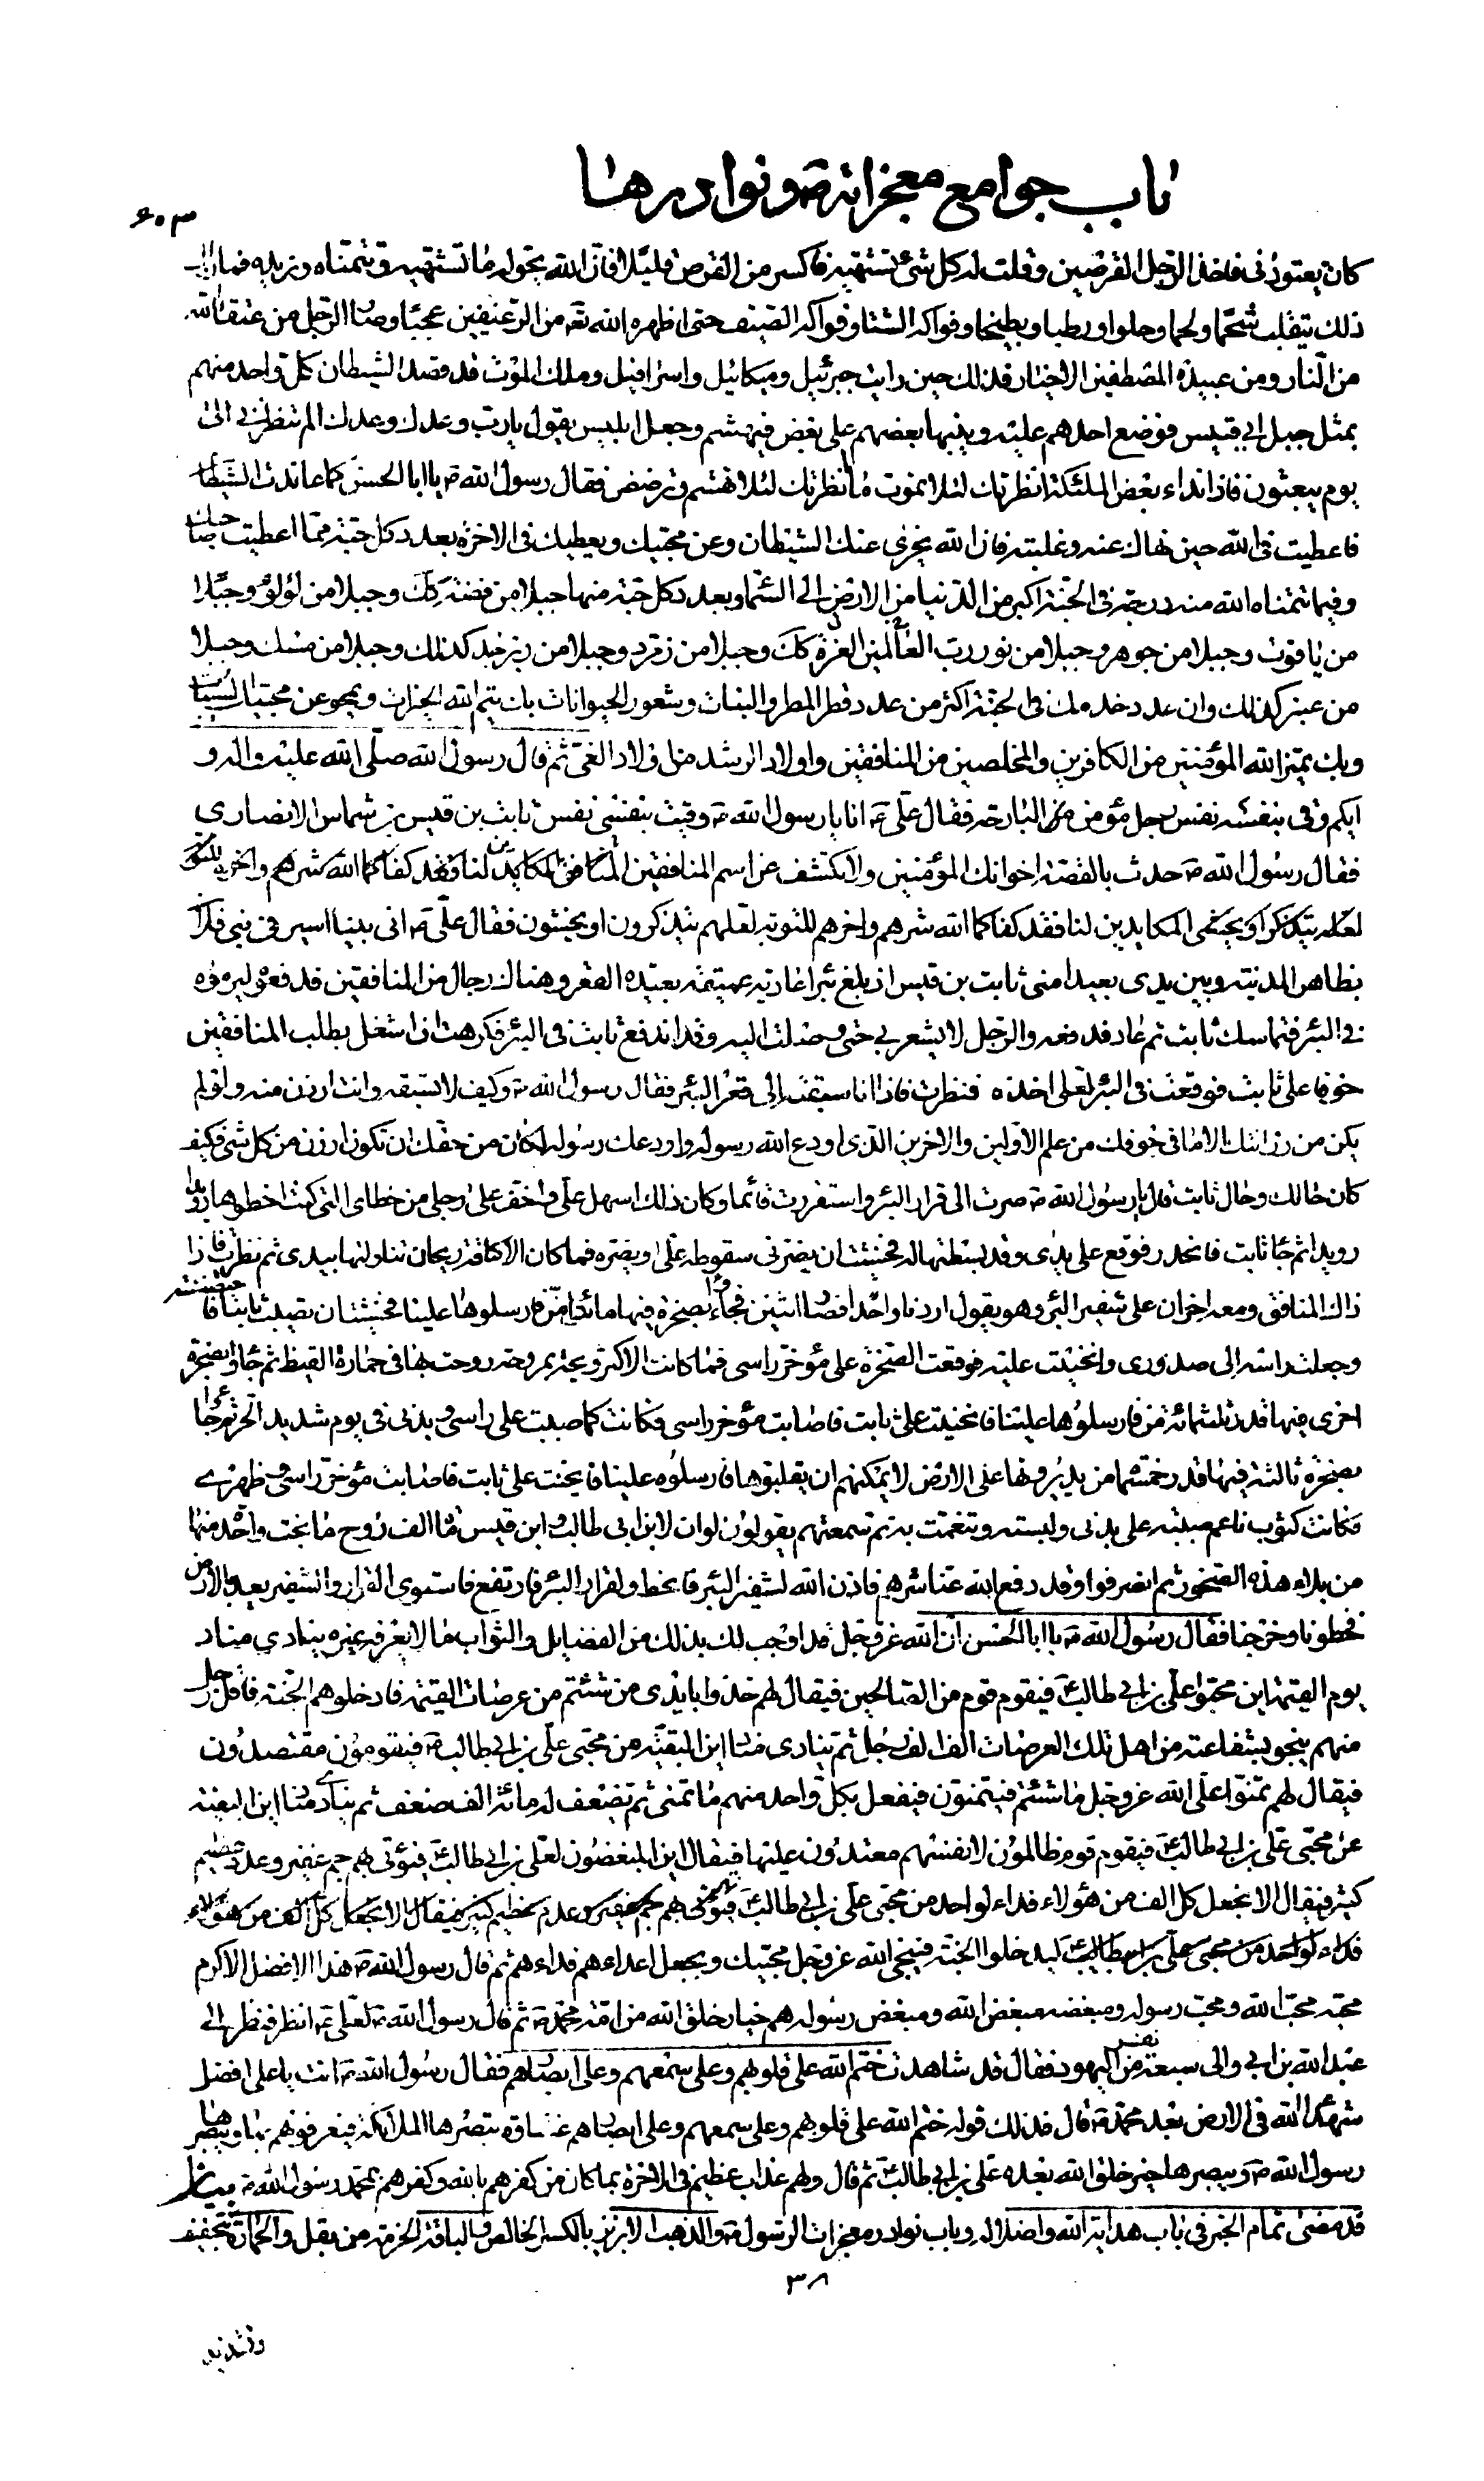 باب جوامع معجزاته ص و نوادرها
۶۰۳
كان يعتورنى فاخذ الرجل القرصين وقلت له كل شئ تشتهيه فاكسر من القرص قليلا فان الله يحوله ما تشتهيه وتتمناه وتريده فما زال
ذلك يتقلب شحما ولحما وحلوا ورطبا وبطيخا وفواكه الشتا وفواكه الصيف حتى اظهر الله تعه من الرغيفين عجبا وصار الرجل من عتقاء الله
من النار ومن عبيده المصطفين الاخيار فذلك حين رايت جبرئيل وميكائيل واسرافيل وملك الموت قد قصد الشيطان كل واحد منهم
بمثل جبل ابي قبيس فوضع احدهم عليه ويبنيها بعضهم على بعض فيهشم وجعل ابليس يقول يا رب وعدك وعدك الم تنظرني الى
يوم يبعثون فاذا نداء بعض الملئكة انظرتك لئلا تموت ما انظرتك لئلا تهشم وترضض فقال رسول الله ص يا ابا الحسن كما عاندت الشيطان
فاعطيت فى الله حين نهاك عنه وغلبته فان الله يخزى عنك الشيطان وعن محبيك ويعطيك فى الاخرة بعدد كل حبة مما اعطيت صاحبك
وفيما تتمناه الله منه درجة فى الجنة اكبر من الدنيا من الارض الى السماء وبعدد كل حبة منها جبلا من فضة كك وجبلا من لؤلؤ وجبلا
من ياقوت وجبلا من جوهر وجبلا من نور رب العالمين العزة كك وجبلا من زمرد وجبلا من زبرجد كذلك وجبلا من مسك وجبلا
من عنبر كذلك وان عدد خدمك فى الجنة اكثر من عدد قطر المطر والنبات وشعور الحيوانات بك يتم الله الخيرات ويمحو عن محبيك السيئات
وبك يميز الله المؤمنين من الكافرين والمخلصين من المنافقين واولاد الرشد من اولاد الغى ثم قال رسول الله صلى الله عليه واله و
ايكم وقى بنفسه نفس رجل مؤمن من البارحة فقال على ع انا يا رسول الله ص وقيت بنفسى نفس ثابت بن قيس بن شماس الانصارى
فقال رسول الله ص حدث بالقصة اخوانك المؤمنين ولا تكشف عن اسم المنافقين المكايدين لنا فقد كفاكما الله شرهم واخره للتوبة
لعله يتذكر او يخشى المكايدين لنا فقد كفاكما الله شرهم واخرهم للتوبة لعلهم يتذكرون او يخشون فقال على ع انى بينا اسير فى بنى فلان
بظاهر المدينة وبين يدى بعيدا منى ثابت بن قيس اذ بلغ بئرا عادية عميقة بعيدة القعر وهناك رجال من المنافقين فدفعوه ليرموه
فى البئر فتماسك ثابت ثم عاد فدفعه والرجل لا يشعر بى حتى وصلت اليه وقد اندفع ثابت فى البئر فكرهت ان اشغل بطلب المنافقين
خوفا على ثابت فوقعت فى البئر لعلى اخذه فنظرت فاذا انا سبقته الى قعر البئر فقال رسول الله ص وكيف لا تسبقه وانت ارزن منه ولو لم
يكن من رزانتك الا ما فى جوفك من علم الاولين والاخرين الذى اودع الله رسوله واودعك رسوله لكان من حقك ان تكون ارزن من كل شئ فكيف
كان حالك وحال ثابت قال يا رسول الله ص صرت الى قرار البئر واستقررت قائما وكان ذلك اسهل على واخف على رجلى من خطاى التى كنت اخطوها رويدا
رويدا ثم جاء ثابت فانحدر فوقع على يدى وقد بسطتها له فخشيت ان يضرنى سقوطه على او يضره فما كان الا كباقة ريحان تناولتها بيدى ثم نظرت فاذا
ذاك المنافق ومعه اخران على شفير البئر وهو يقول اردنا واحدا فصارا اثنين فجاؤا بصخرة فيها مائة من فارسلوها علينا فخشيت ان تصيب ثابتا فاحتضنته
وجعلت راسه الى صدرى وانحنيت عليه فوقعت الصخرة على مؤخر راسى فما كانت الا كترويحة بمروحة روحت بها فى حمارة القيظ ثم جاؤا بصخرة
اخرى فيها قدر ثلثمائة من فارسلوها علينا فانحنيت على ثابت فاصابت مؤخر راسى فكانت كماء صبب على راسى وبدنى فى يوم شديد الحر ثم جاؤا
بصخرة ثالثة فيها قدر خمسمائة من يديرونها على الارض لا يمكنهم ان يقلبوها فارسلوه علينا فانحنيت على ثابت فاصابت مؤخر راسى وظهرى
فكانت كثوب ناعم صببته على بدنى ولبسته وتنعمت به ثم سمعتهم يقولون لو ان لابن ابى طالب وابن قيس مائة الف روح ما نجت واحدة منها
من بلاء هذه الصخور ثم انصرفوا وقد دفع الله عنا شرهم فاذن الله لشفير البئر فانحط ولقرار البئر فارتفع فاستوى القرار والشفير بعد بالارض
فخطونا وخرجنا فقال رسول الله ص يا ابا الحسن ان الله عز وجل قد اوجب لك بذلك من الفضايل والثواب ما لا يعرفه غيره ينادى مناد
يوم القيمة اين محبوا على بن ابى طالب ع فيقوم قوم من الصالحين فيقال لهم خذوا بايدى من شئتم من عرصات القيمة فادخلوهم الجنة فاقل رجل
منهم ينجو بشفاعته من اهل تلك العرصات الف الف رجل ثم ينادى مناد اين البقية من محبى على بن ابى طالب ع فيقومون مقتصدون
فيقال لهم تمنوا على الله عز وجل ما شئتم فيتمنون فيفعل بكل واحد منهم ما تمنى ثم تضعف له مائة الف ضعف ثم ينادى مناد اين البقية
عن محبى على بن ابى طالب ع فيقوم قوم ظالمون لانفسهم معتدون عليها فيقال اين المبغضون لعلى بن ابى طالب ع فيؤتى بهم جم غفير وعدد عظيم
كثير فيقال الا نجعل كل الف من هؤلاء فداء لواحد من محبى على بن ابى طالب ع فيؤتى بهم جم غفير وعدد عظيم كثير فيقال الا نجعل كل الف من هؤلاء
فداء لواحد من محبى على بن ابى طالب ع ليدخلوا الجنة فينجى الله عز وجل محبيك ويجعل اعداءهم فداءهم ثم قال رسول الله ص هذا الافضل الاكرم
محبه محب الله ومحب رسوله ومبغضه مبغض الله ومبغض رسوله هم خيار خلق الله من امة محمد ص ثم قال رسول الله ص لعلى ع انظر فنظر الى
عبد الله بن ابى والى سبعة نفر من اليهود فقال قد شاهدت ختم الله على قلوبهم وعلى سمعهم وعلى ابصارهم فقال رسول الله ص انت يا على افضل
شهداء الله فى الارض بعد محمد ص قال فذلك قوله ختم الله على قلوبهم وعلى سمعهم وعلى ابصارهم غشاوة تبصرها الملائكة فيعرفونهم بها ويبصرها
رسول الله ص ويبصرها خير خلق الله بعده على بن ابى طالب ع ثم قال ولهم عذاب عظيم فى الاخرة بما كان من كفرهم بالله وكفرهم بمحمد رسول الله ص بيان
قد مضى تمام الخبر فى باب هداية الله واضلاله وباب نوادر معجزات الرسول ص والذهب الابريز بالكسر الخالص والباقة الحزمة من بقل والحمارة بتخفيف
٣٨
وتشديد